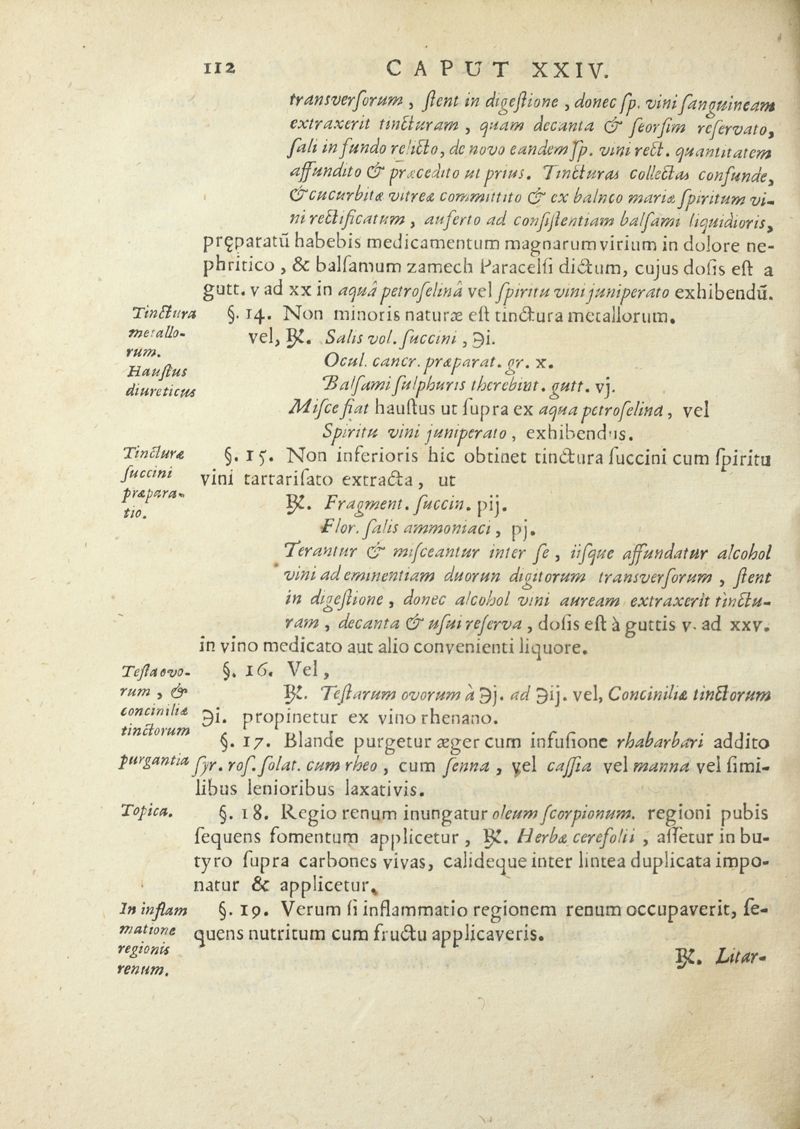 112 CAPUT XXIV.
transverſorum, ſtent in digeſtione, donec ſp. vini ſanguineam
extraxerit tincturam, quam decanta & ſeorſim reſervato,
ſali in fundo relicto, de novo eandem ſp. vini rect. quantitatem
affundito & præcedito ut prius. Tincturas collectas confunde,
& cucurbitæ vitreæ committito & ex balneo mariæ ſpiritum vi-
ni rectificatum, auferto ad conſiſtentiam balſami liquidioris,
pręparatū habebis medicamentum magnarum virium in dolore ne-
phritico, & balſamum zamech Paracelſi dictum, cujus doſis eſt a
gutt. v ad xx in aquâ petroſelinâ vel ſpiritu vini juniperato exhibendū.
Tinctura
metallo-
rum.
§. 14. Non minoris naturæ eſt tinctura metallorum.
vel, ℞. Salis vol. ſuccini, ℈i.
Ocul. cancr. præparat. gr. x.
Hauſtus
diureticus
Balſami ſulphuris therebint. gutt. vj.
Miſce fiat hauſtus ut ſupra ex aqua petroſelinâ, vel
Spiritu vini juniperato, exhibendus.
Tincturæ
ſuccini
præpara-
tio.
§. 15. Non inferioris hic obtinet tinctura ſuccini cum ſpiritu
vini tartariſato extracta, ut
℞. Fragment. ſuccin. pij.
Flor. ſalis ammoniaci, pj.
Terantur & miſceantur inter ſe, iiſque affundatur alcohol
vini ad eminentiam duorun digitorum transverſorum, ſtent
in digeſtione, donec alcohol vini auream extraxerit tinctu-
ram, decanta & uſui reſerva, doſis eſt à guttis v. ad xxv.
in vino medicato aut alio convenienti liquore.
Teſta ovo-
rum, &
concinilia
tinctorum
§. 16. Vel,
℞. Teſtarum ovorum a ℈j. ad ℈ij. vel, Conciniliæ tinctorum
℈i. propinetur ex vino rhenano.
purgantia
§. 17. Blande purgetur æger cum infuſione rhabarbari addito
ſyr. roſ. ſolat. cum rheo, cum ſenna, vel caſſia vel manna vel ſimi-
libus lenioribus laxativis.
Topica.
§. 18. Regio renum inungatur oleum ſcorpionum. regioni pubis
ſequens fomentum applicetur, ℞. Herbæ cerefolii, aſſetur in bu-
tyro ſupra carbones vivas, calideque inter lintea duplicata impo-
natur & applicetur.
In inflam
matione
regionis
renum.
§. 19. Verum ſi inflammatio regionem renum occupaverit, ſe-
quens nutritum cum fructu applicaveris.
℞. Litar-